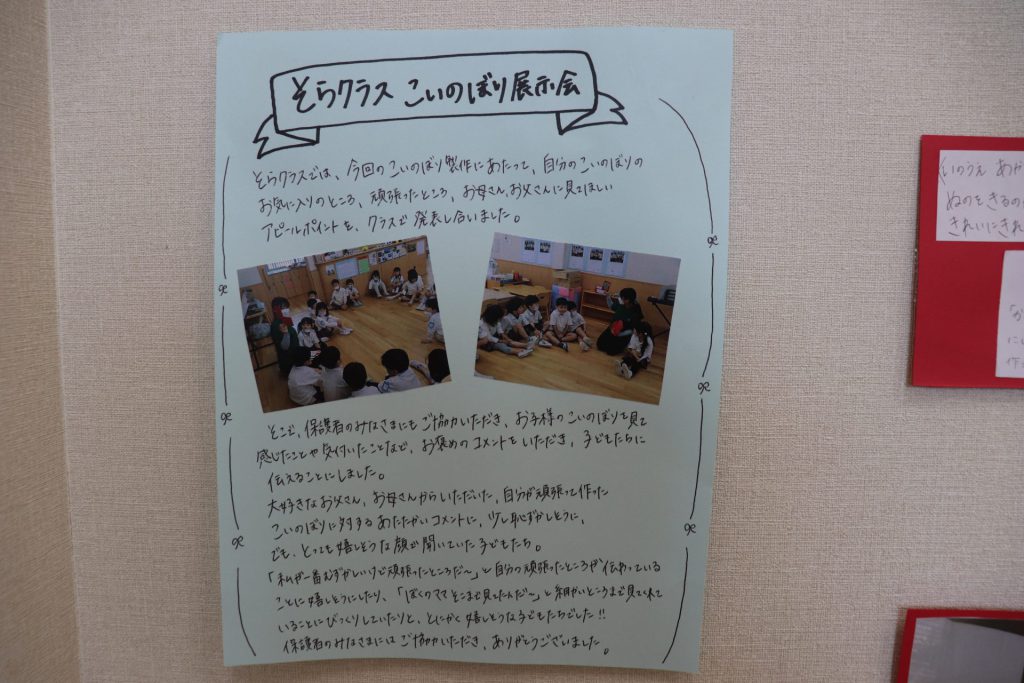 そらクラス こいのぼり展示会
そらクラスでは、今回のこいのぼり製作にあたって、自分のこいのぼりの
お気に入りのところ、頑張ったところ、お母さん、お父さんに見てほしい
アピールポイントを、クラスで発表し合いました。
そこで、保護者のみなさまにもご協力いただき、お子様のこいのぼりを見て
感じたことや気付いたことなど、お褒めのコメントをいただき、子どもたちに
伝えることにしました。
大好きなお父さん、お母さんからいただいた、自分が頑張って作った
こいのぼりに対するあたたかいコメントに、少し恥ずかしそうに、
でも、とっても嬉しそうな顔で聞いていた子どもたち。
「私が一番むずかしいけど頑張ったところだ〜」と自分の頑張ったところが伝わっている
ことに嬉しそうにしたり、「ぼくのママそこまで見てたんだ〜」と細かいところまで見てくれて
いることにびっくりしていたりと、とにかく嬉しそうな子どもたちでした!!
保護者のみなさまにはご協力いただき、ありがとうございました。
いのうえ あか
ぬのをきるの
きれいにきれ
「か
にし
作